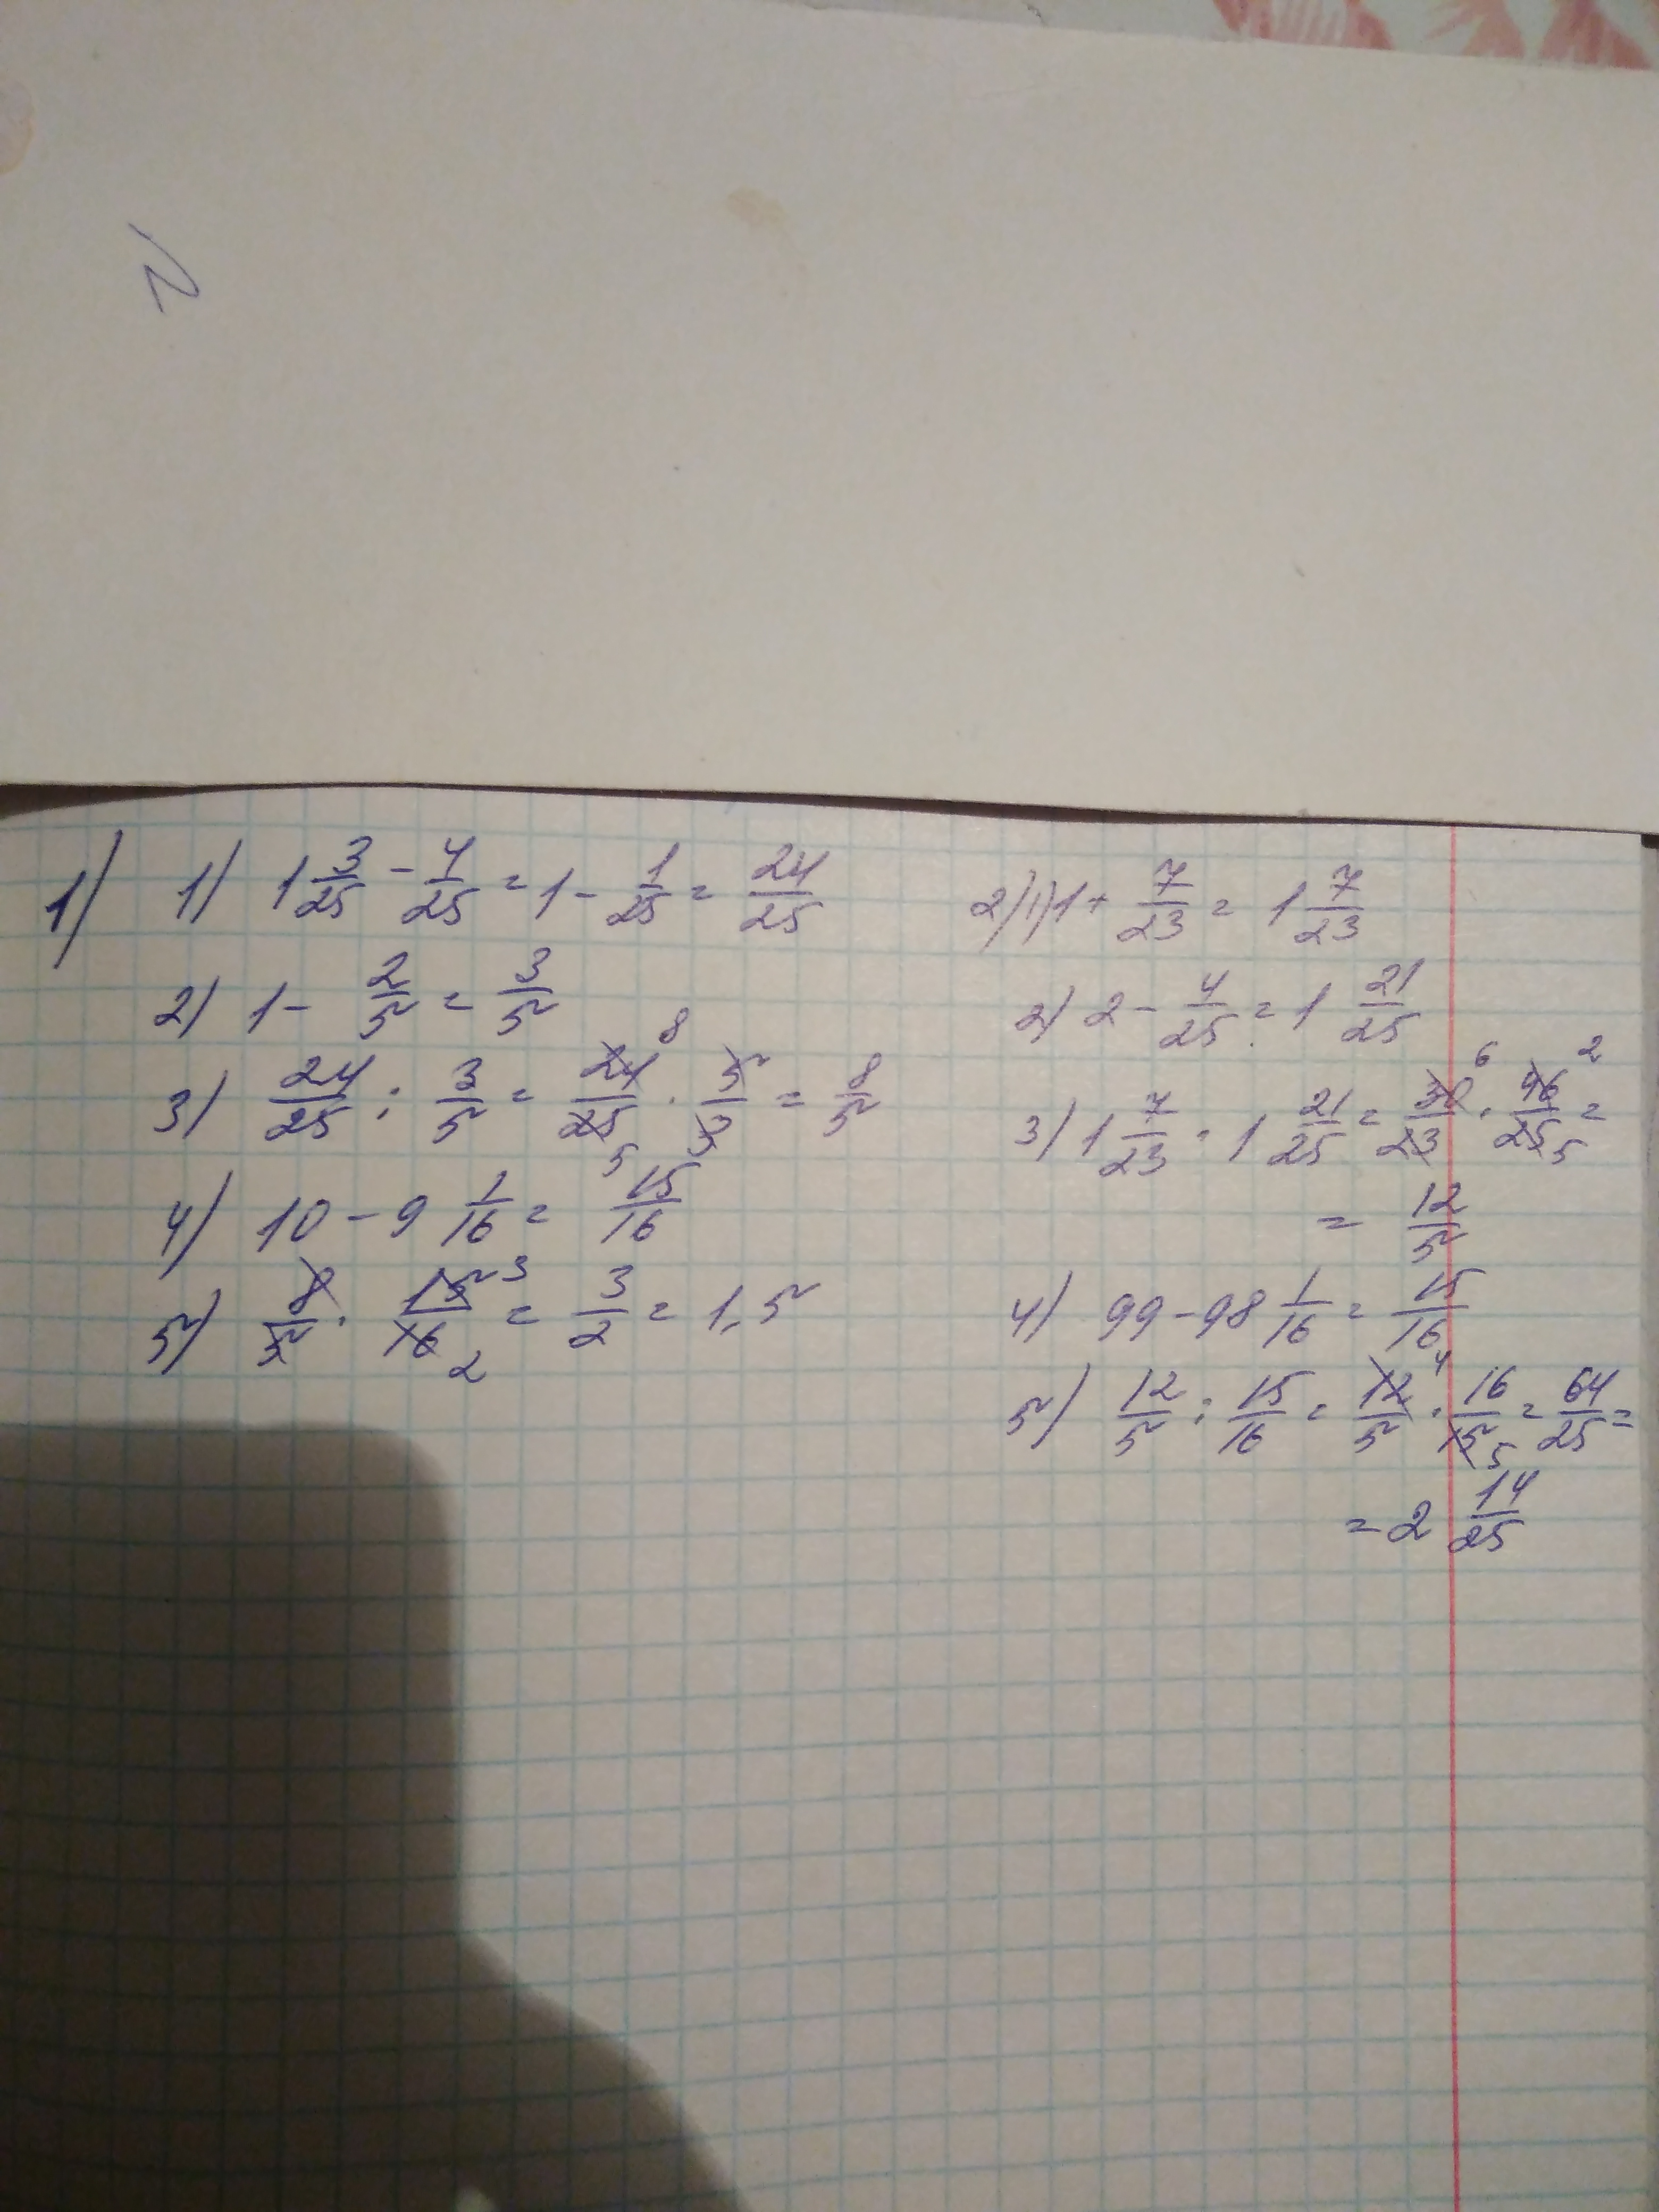 1) 1) 1 3/25 - 4/25 = 1 - 1/25 = 24/25
2) 1 - 2/5 = 3/5
3) 24/25 : 3/5 = 24/25 · 5/3 = 8/5
8
5
4) 10 - 9 1/16 = 15/16
5) 8/5 · 15/16 = 3/2 = 1,5
3
2
2) 1) 1 + 7/23 = 1 7/23
2) 2 - 4/25 = 1 21/25
3) 1 7/23 · 1 21/25 = 30/23 · 46/25 =
6 2
5
= 12/5
4) 99 - 98 1/16 = 15/16
5) 12/5 : 15/16 = 12/5 · 16/15 = 64/25 =
4
5
= 2 14/25